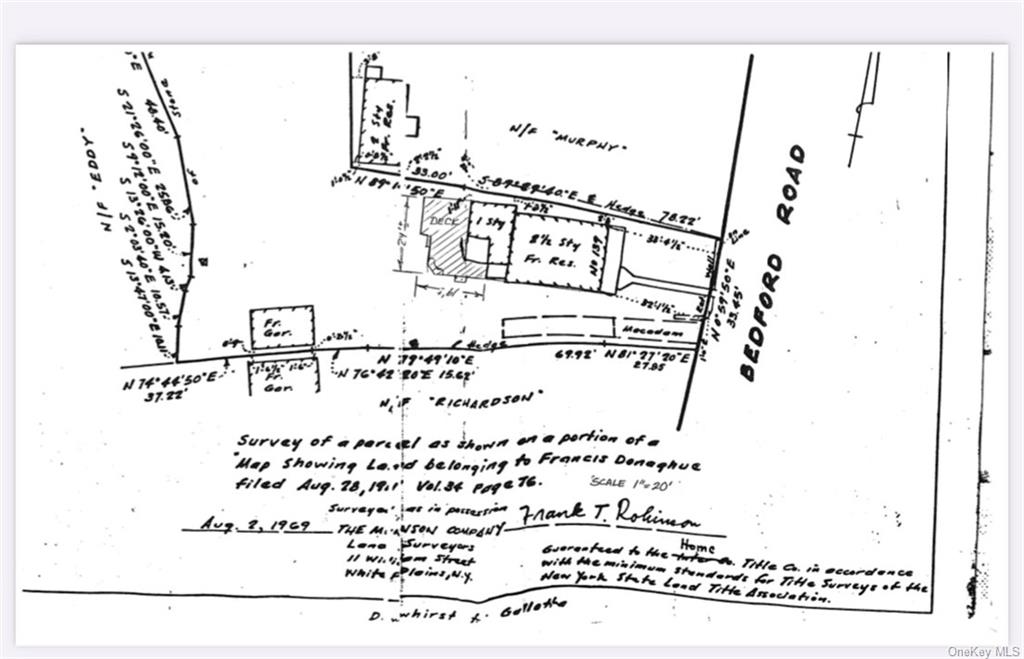 N/F "EDDY"
S 21°26'00"E
S 9°12'00"E 15.20'
S 13°26'00"W 4.13'
S 2°03'40"E 10.57'
S 13°47'00"E
46.40'
Stone
2 Sty
Fr. Res.
N/F "MURPHY"
33.00'
S 89°29'40"E
Hedge
78.22'
DECK
1 Sty
2½ Sty
Fr. Res.
No 137
33'-4½"
32'-1½"
Wall
N 0°59'50"E
33.45'
BEDFORD ROAD
Macadam
Fr.
Gar.
Hedge
69.92'
N 81°27'20"E
27.85
N 79°49'10"E
N 76°42'20"E 15.62'
N 74°44'50"E
37.22'
Fr.
Gar.
N/F "RICHARDSON"
Survey of a parcel as shown on a portion of a
"Map Showing Land belonging to Francis Donaghue
filed Aug. 28, Vol. 34 page 76.
SCALE 1"=20'
Surveyed as in possession
Frank T. Robinson
Aug. 2, 1969
THE COMPANY
Land Surveyors
11 William Street
White Plains, N.Y.
Home
Guaranteed to the Title Co. in accordance
with the minimum standards for Title Surveys of the
New York State Land Title Association.
to
OneKey MLS